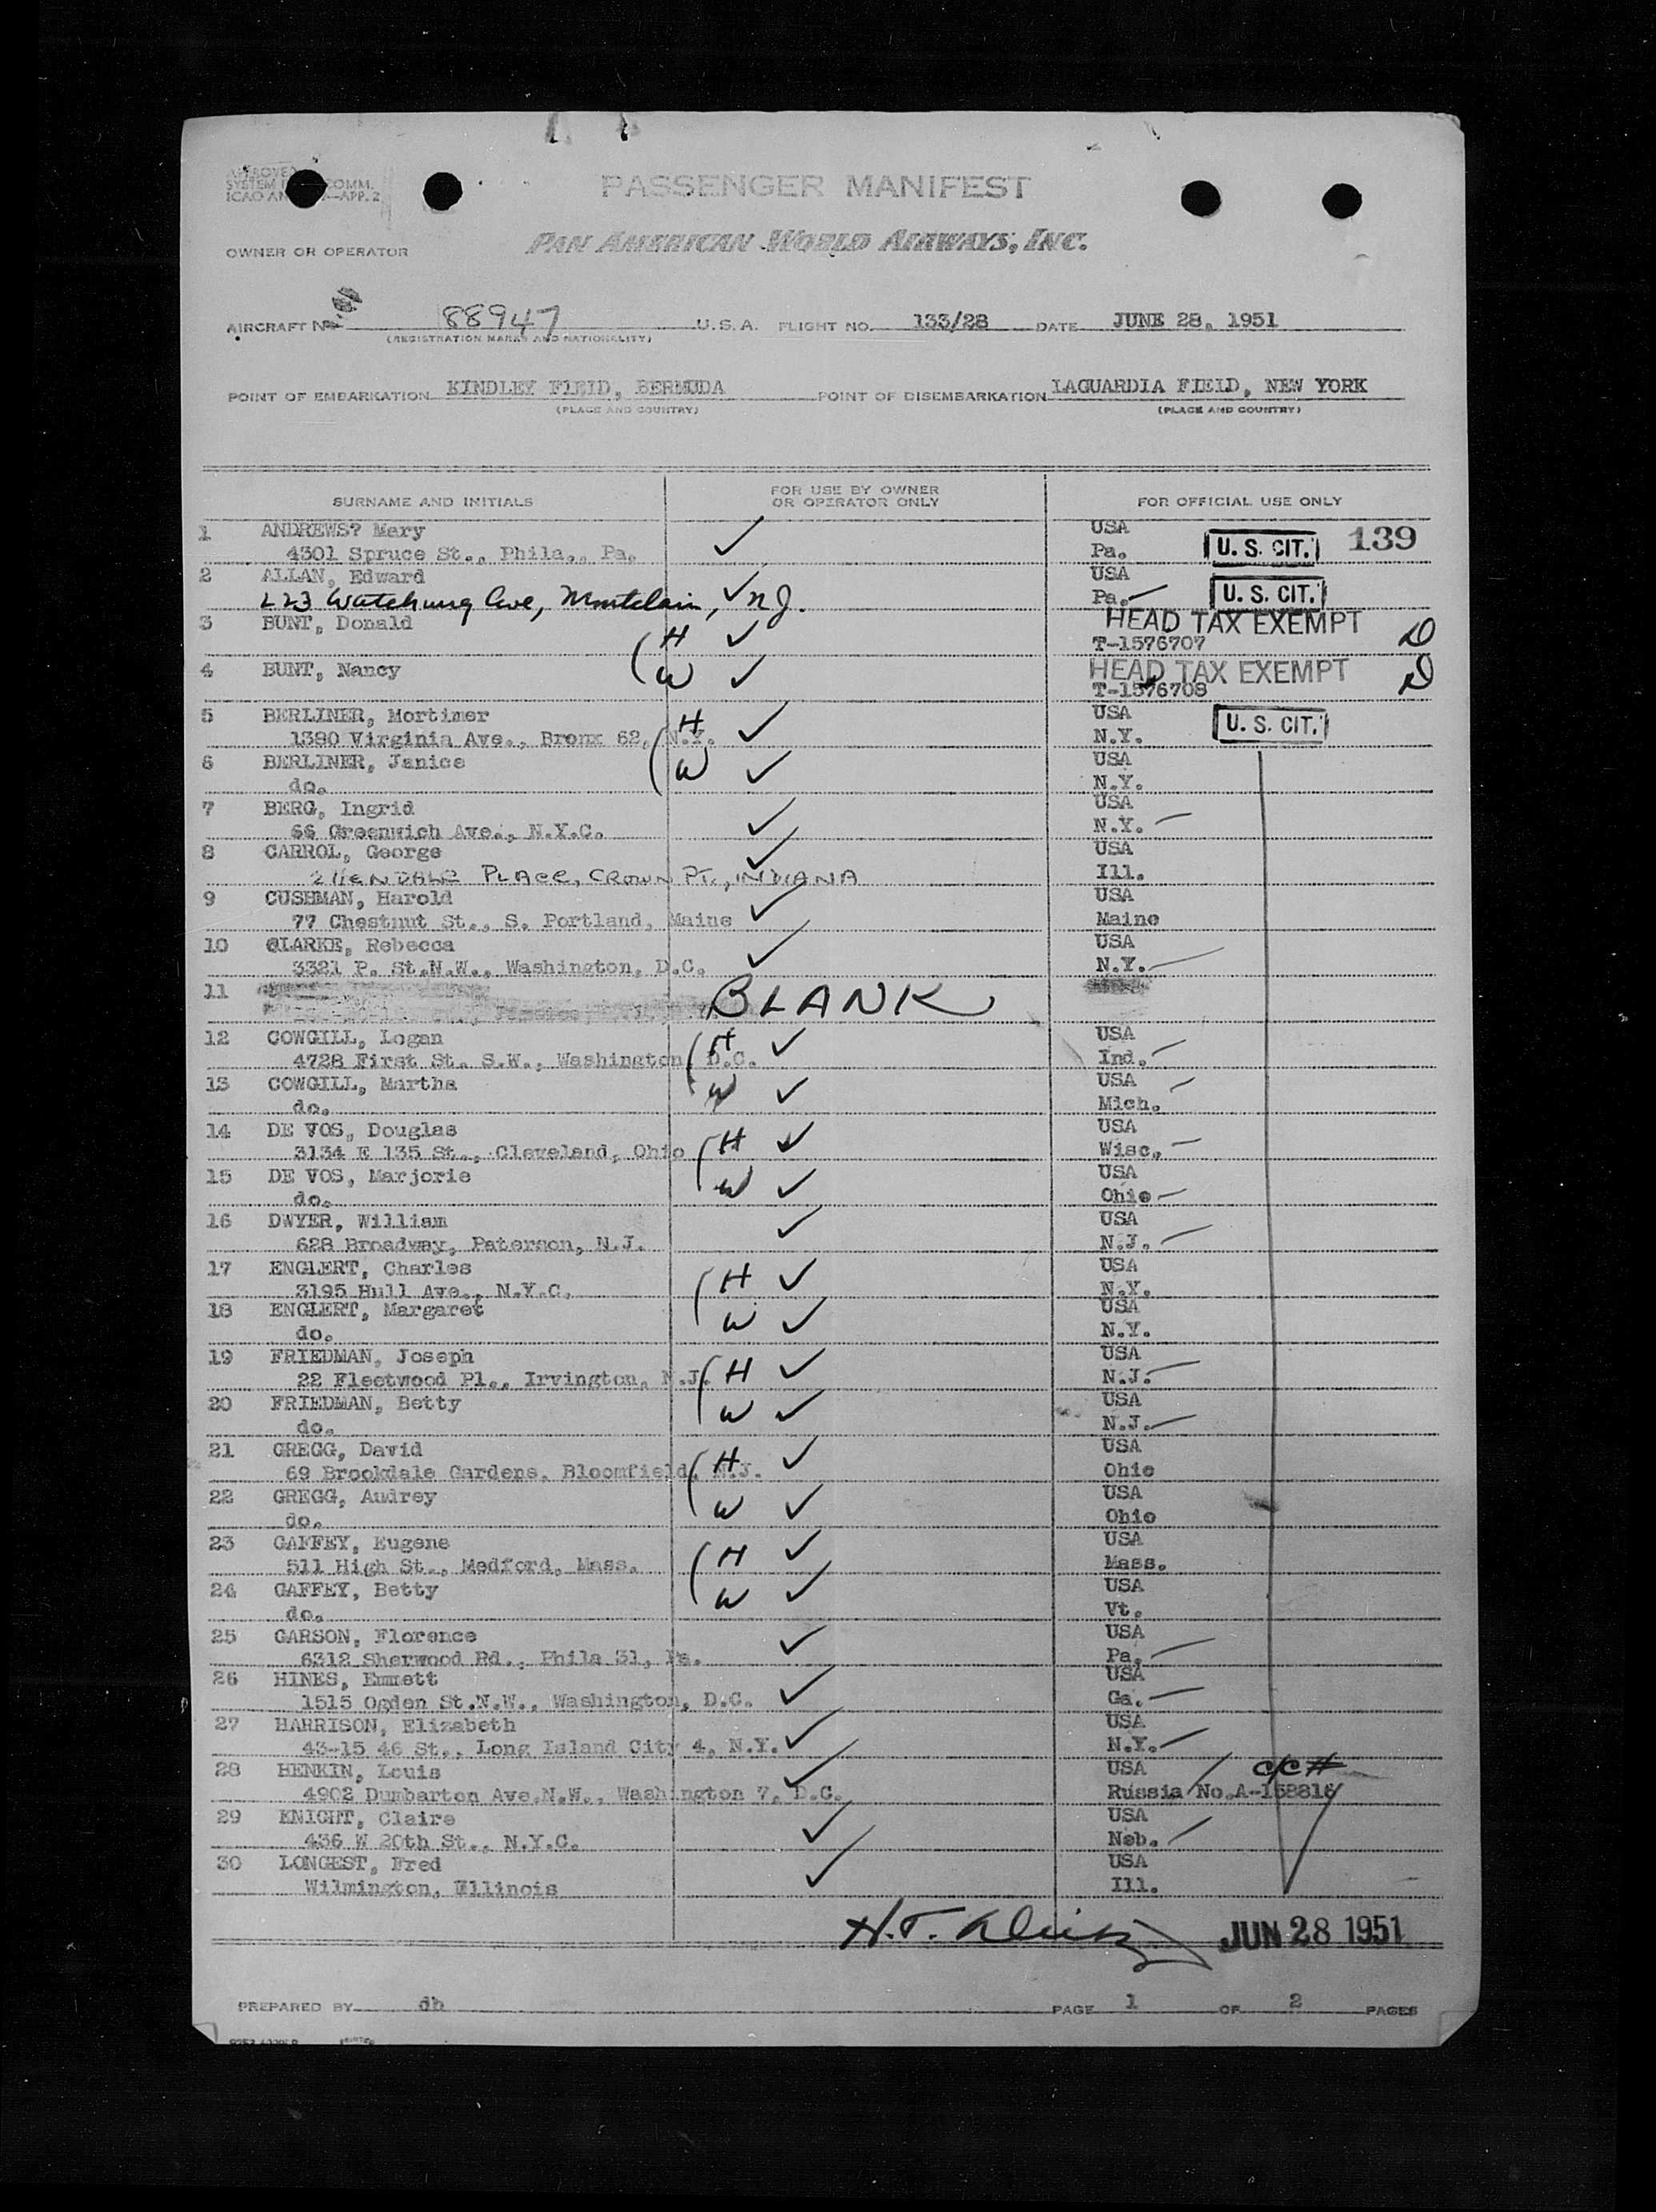 APPROVED
SYSTEM COMM.
ICAO AN —APP. 2
PASSENGER MANIFEST
OWNER OR OPERATOR PAN AMERICAN WORLD AIRWAYS, INC.
AIRCRAFT 88947 U.S.A. FLIGHT NO. 133/28 DATE JUNE 28, 1951
(REGISTRATION MARKS AND NATIONALITY)
POINT OF EMBARKATION KINDLEY FIELD, BERMUDA POINT OF DISEMBARKATION LAGUARDIA FIELD, NEW YORK
(PLACE AND COUNTRY) (PLACE AND COUNTRY)
SURNAME AND INITIALS FOR USE BY OWNER OR OPERATOR ONLY FOR OFFICIAL USE ONLY
1 ANDREWS? Mary USA
4301 Spruce St., Phila., Pa. ✓ Pa. U. S. CIT. 139
2 ALLAN, Edward USA
223 Watchung Ave, Montclair, ✓ N.J. Pa. U. S. CIT.
3 BUNT, Donald HEAD TAX EXEMPT
H ✓ T-1576707 D
4 BUNT, Nancy HEAD TAX EXEMPT
W ✓ T-1576708 D
5 BERLINER, Mortimer USA
1380 Virginia Ave., Bronx 62, N.Y. H ✓ N.Y. U. S. CIT.
6 BERLINER, Janice USA
do. W ✓ N.Y.
7 BERG, Ingrid USA
66 Greenwich Ave., N.Y.C. ✓ N.Y.
8 CARROL, George USA
PLACE, CROWN PT., INDIANA ✓ Ill.
9 CUSHMAN, Harold USA
77 Chestnut St., S. Portland, Maine ✓ Maine
10 CLARKE, Rebecca USA
3321 P. St.N.W., Washington, D.C. ✓ N.Y.
11 BLANK
12 COWGILL, Logan USA
4728 First St. S.W., Washington, D.C. H ✓ Ind.
13 COWGILL, Martha USA
do. W ✓ Mich.
14 DE VOS, Douglas USA
3134 E 135 St., Cleveland, Ohio H ✓ Wisc.
15 DE VOS, Marjorie USA
do. W ✓ Ohio
16 DWYER, William USA
628 Broadway, Paterson, N.J. ✓ N.J.
17 ENGLERT, Charles USA
3195 Hull Ave., N.Y.C. H ✓ N.Y.
18 ENGLERT, Margaret USA
do. W ✓ N.Y.
19 FRIEDMAN, Joseph USA
22 Fleetwood Pl., Irvington, N.J. H ✓ N.J.
20 FRIEDMAN, Betty USA
do. W ✓ N.J.
21 GREGG, David USA
69 Brookdale Gardens, Bloomfield, N.J. H ✓ Ohio
22 GREGG, Audrey USA
do. W ✓ Ohio
23 GAFFEY, Eugene USA
511 High St., Medford, Mass. H ✓ Mass.
24 GAFFEY, Betty USA
do. W ✓ Vt.
25 GARSON, Florence USA
6312 Sherwood Rd., Phila 31, Pa. ✓ Pa.
26 HINES, Emmett USA
1515 Ogden St.N.W., Washington, D.C. ✓ Ga.
27 HARRISON, Elizabeth USA
43-15 46 St., Long Island City 4, N.Y. ✓ N.Y.
28 HENKIN, Louis USA C/C #
4902 Dumbarton Ave.N.W., Washington 7, D.C. ✓ Russia No.A-158816
29 KNIGHT, Claire USA
436 W 20th St., N.Y.C. ✓ Neb.
30 LONGEST, Fred USA
Wilmington, Illinois ✓ Ill.
H.T. JUN 28 1951
PREPARED BY db PAGE 1 OF 2 PAGES